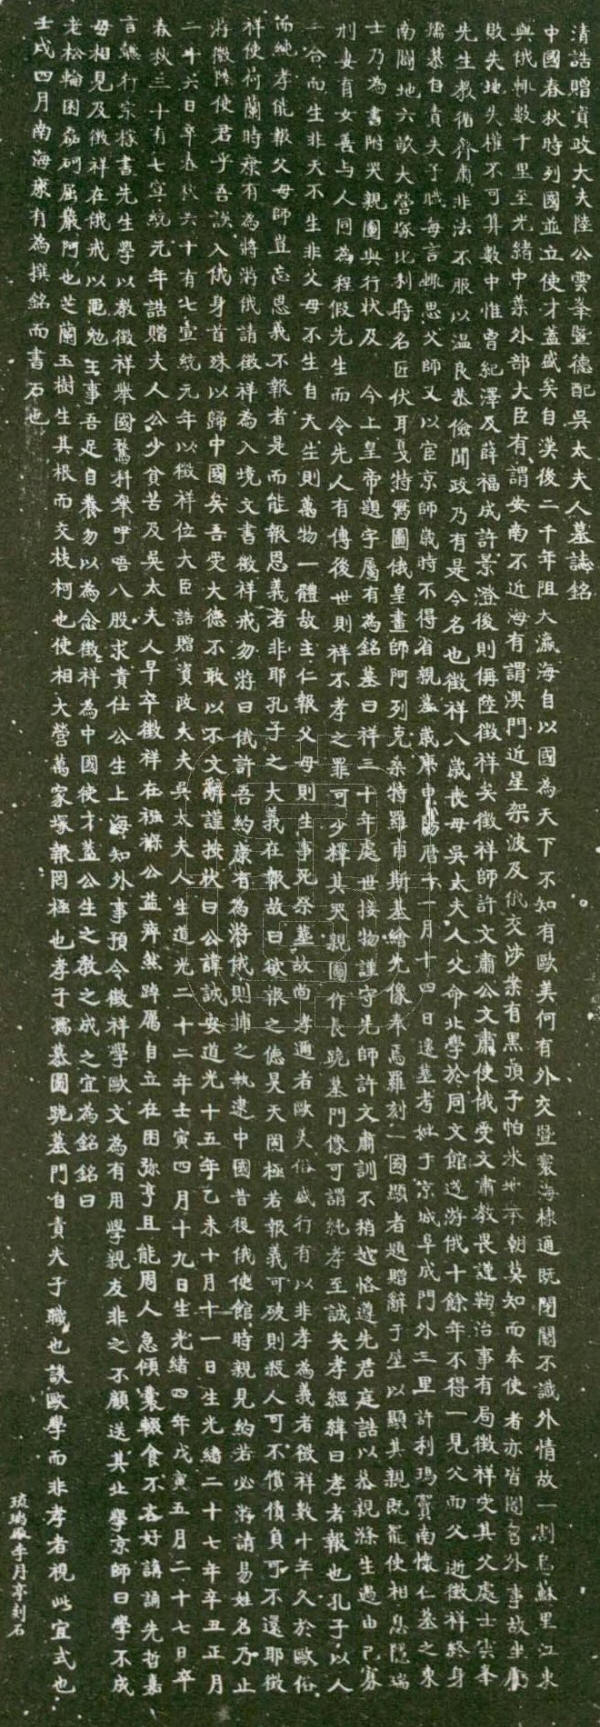 清誥贈資政大夫陸公雲峯暨德配吳太夫人墓誌銘
中國春秋時列國並立使才蓋盛矣自漢後二千年阻大瀛海自以國為天下不知有歐美何有外交暨寰海棣通既閉關不識外情故一割烏蘇里江東
與俄輒數十里至光緒中葉外部大臣有謂安南不近海有謂澳門近星架波及俄交涉案有黑頂子帕米地舉朝莫知而奉使者亦皆闇習外事故坐虧
敗失地失權不可算數中惟曾紀澤及薛福成許景澄後則偁陸徵祥矣徵祥師許文肅公文肅使俄受文肅教畏謹鞠治事有局徵祥受其父處士雲峯
先生教循齊肅非法不服以溫良恭儉聞政乃有是令名也徵祥八歲喪母吳太夫人父命北學於同文館迨游俄十餘年不得一見父而父逝徵祥終身
孺慕自責夫子職每言輒思父師又以宦京師歲時不得省親墓歲庚申陽曆十一月十四日遷墓考妣于京城阜成門外三里許利瑪竇南懷仁墓之東
南闢地六畝大營塚比利時名匠伏耳戞特寫圖俄皇畫師阿列克桑特羅甫斯基繪先像奉馬羅刻一國顯者題贈辭于壁以顯其親既罷使相息隱瑞
士乃為書附哭親圖與行狀及 今上皇帝題字屬有為銘墓曰祥三十年處世接物謹守先師許文肅訓不稍越恪遵先君庭誥以恭親滌生過由己寡
刑妻自女善与人同為程假先生而令先人有傳後世則祥不孝之罪可少釋其哭親圖作長跪墓門像可謂純孝至誠矣孝經緯曰孝者報也孔子以人
三合而生非天不生非父母不生自天生則萬物一體故主仁報父母則生事死祭墓故尚孝邇者歐美俗盛行有以非孝為義者徵祥數十年久於歐俗
而純孝能報父母師豈忘恩義不報者是而能報恩義者非耶孔子之大義在報故曰欲報之德昊天罔極若報義可破則殺人可不償債負可不還耶徵
祥使荷蘭時康有為將游俄請徵祥為入境文書徵祥戒勿游曰俄許吾約康有為將俄則捕之執逮中國昔後俄使館時親見約若必游請易姓名乃止
游微陸使君乎吾誤入俄身首殊以歸中國矣吾受大德不敢以不文辭謹按狀曰公諱誠安道光十五年乙未十月十一日生光緒二十七年辛丑正月
二十六日卒春秋六十有七宣統元年以徵祥位大臣誥贈資政大夫吳太夫人生道光二十二年壬寅四月十九日生光緒四年戊寅五月二十七日卒
春秋三十有七宣統元年誥贈夫人公少貧苦及吳太夫人早卒徵祥在襁褓公益齊然踔厲自立在困弥亨且能周人急傾囊輟食不吝好講誦先哲嘉
言懿行宗檡書先生學以教徵祥舉國騖科舉呼唔八股求貴仕公生上海知外事預令徵祥學歐文為有用學親友非之不顧送其北學京師曰學不成
毋相見及徵祥在俄戒以黽勉 王事吾足自養勿以為念徵祥為中國使才蓋公生之教之成之宜為銘銘曰
老松輪囷磊砢屈巖阿也芝蘭玉樹生其根而交枝柯也使相大營萬家塚報罔極也孝子孺慕圖跪墓門自責夫子職也談歐學而非孝者視此宜式也
壬戌四月南海康有為撰銘而書石也
琉璃廠李月亭刻石